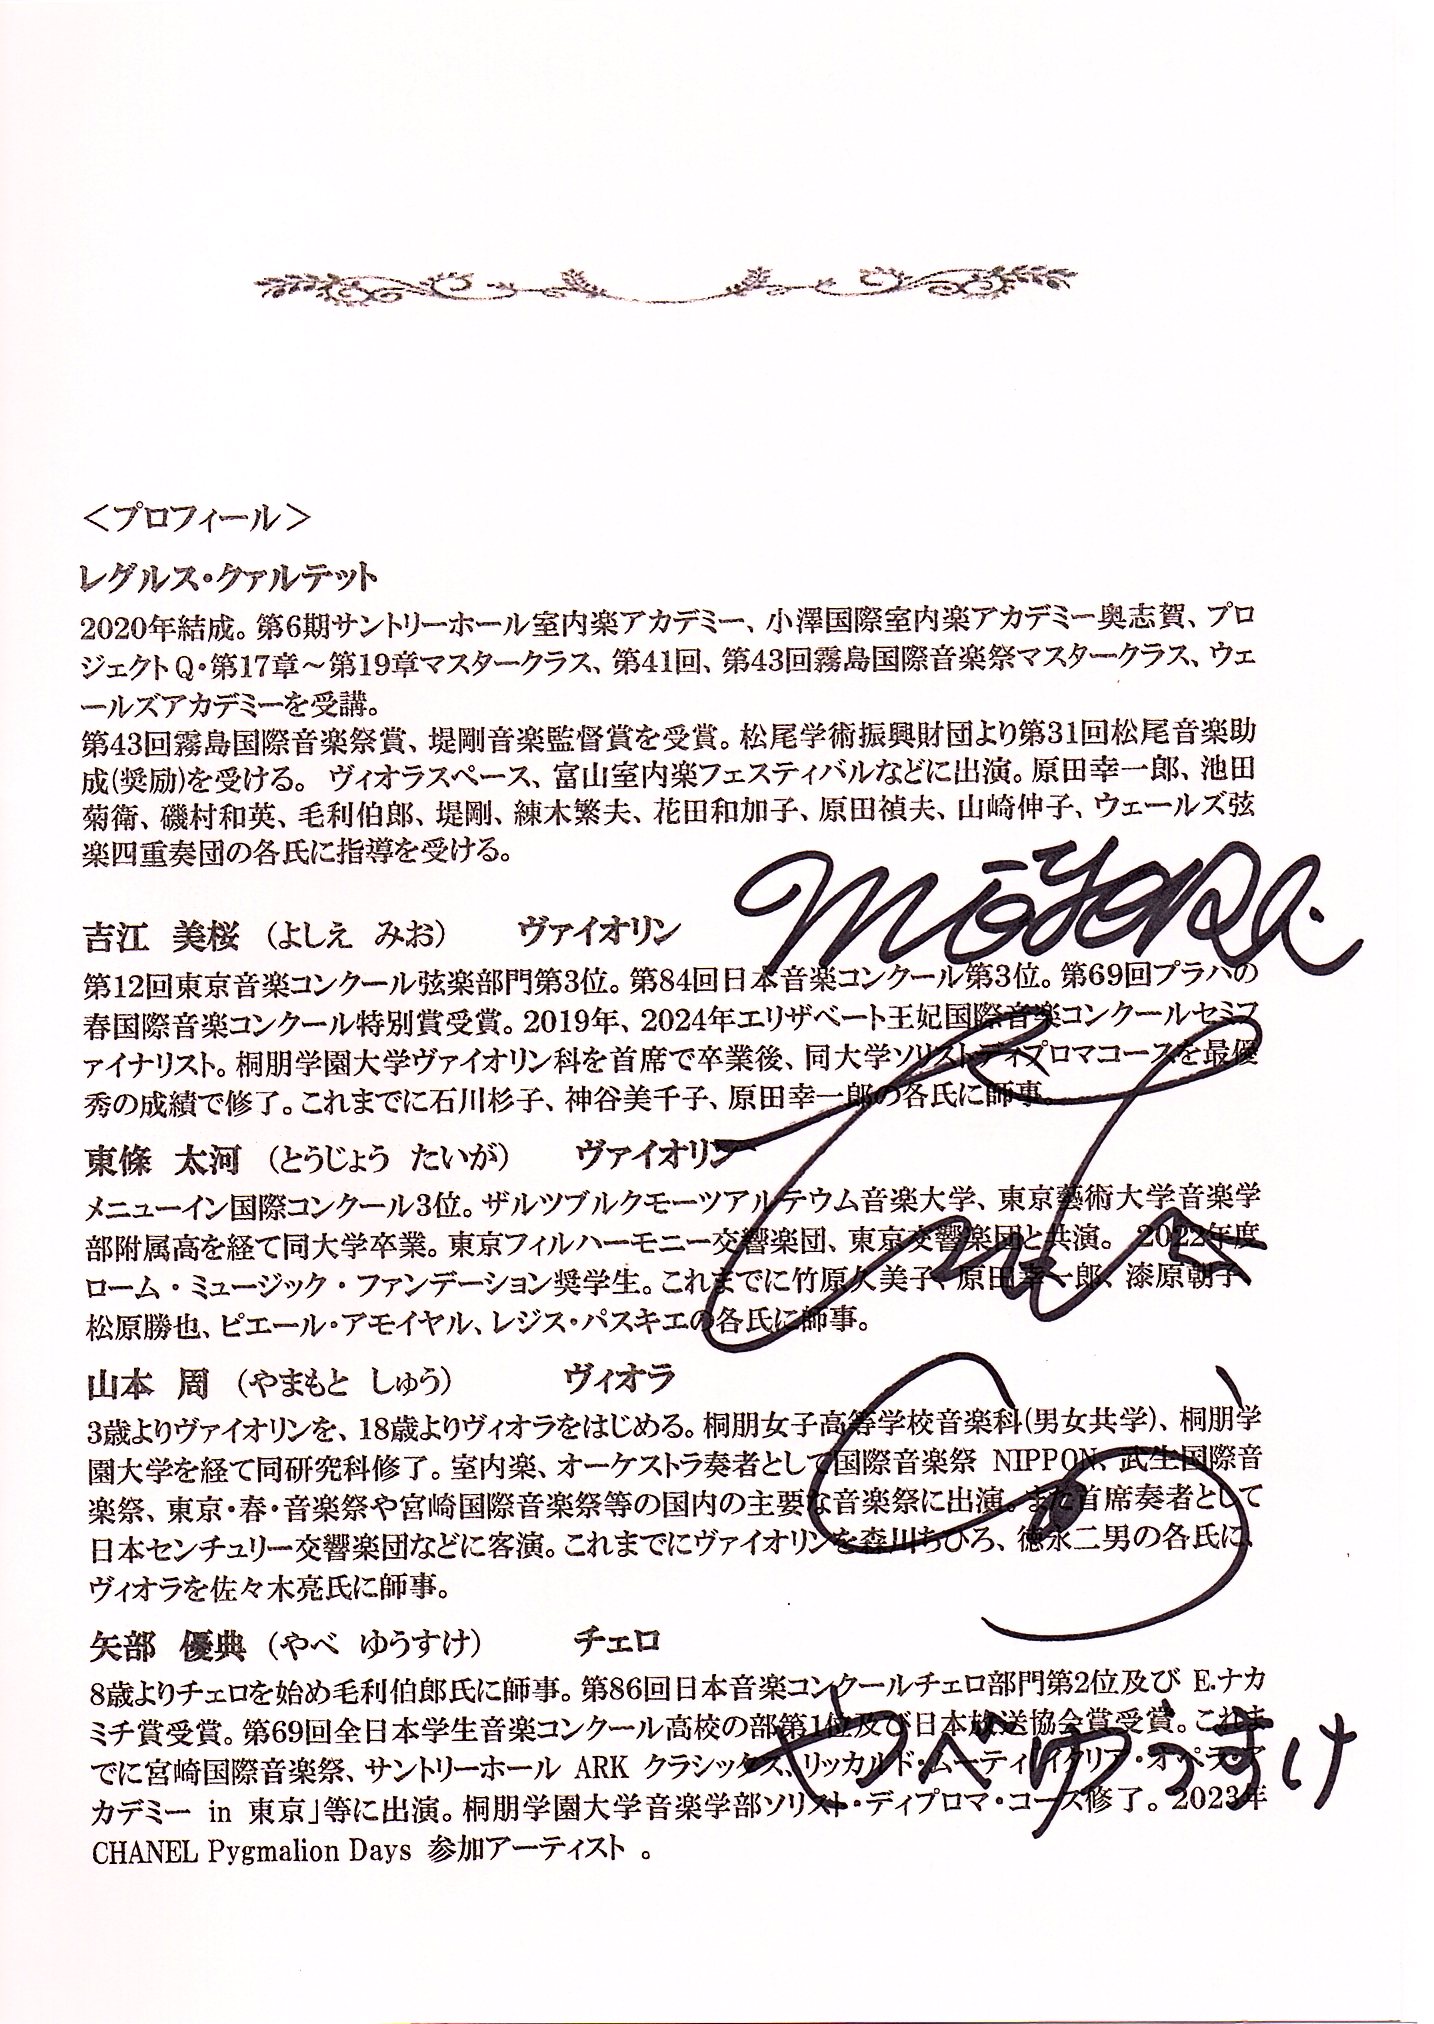 ＜プロフィール＞
レグルス・クァルテット
2020年結成。第6期サントリーホール室内楽アカデミー、小澤国際室内楽アカデミー奥志賀、プロ
ジェクトQ・第17章～第19章マスタークラス、第41回、第43回霧島国際音楽祭マスタークラス、ウェ
ールズアカデミーを受講。
第43回霧島国際音楽祭賞、堤剛音楽監督賞を受賞。松尾学術振興財団より第31回松尾音楽助
成(奨励)を受ける。 ヴィオラスペース、富山室内楽フェスティバルなどに出演。原田幸一郎、池田
菊衛、磯村和英、毛利伯郎、堤剛、練木繁夫、花田和加子、原田禎夫、山崎伸子、ウェールズ弦
楽四重奏団の各氏に指導を受ける。
吉江 美桜 （よしえ みお） ヴァイオリン
第12回東京音楽コンクール弦楽部門第3位。第84回日本音楽コンクール第3位。第69回プラハの
春国際音楽コンクール特別賞受賞。2019年、2024年エリザベート王妃国際音楽コンクールセミフ
ァイナリスト。桐朋学園大学ヴァイオリン科を首席で卒業後、同大学ソリストディプロマコースを最優
秀の成績で修了。これまでに石川杉子、神谷美千子、原田幸一郎の各氏に師事。
東條 太河 （とうじょう たいが） ヴァイオリン
メニューイン国際コンクール3位。ザルツブルクモーツアルテウム音楽大学、東京藝術大学音楽学
部附属高を経て同大学卒業。東京フィルハーモニー交響楽団、東京交響楽団と共演。 2022年度
ローム・ミュージック・ファンデーション奨学生。これまでに竹原久美子、原田幸一郎、漆原朝子、
松原勝也、ピエール・アモイヤル、レジス・パスキエの各氏に師事。
山本 周 （やまもと しゅう） ヴィオラ
3歳よりヴァイオリンを、18歳よりヴィオラをはじめる。桐朋女子高等学校音楽科(男女共学)、桐朋学
園大学を経て同研究科修了。室内楽、オーケストラ奏者として国際音楽祭 NIPPON、武生国際音
楽祭、東京・春・音楽祭や宮崎国際音楽祭等の国内の主要な音楽祭に出演。また首席奏者として
日本センチュリー交響楽団などに客演。これまでにヴァイオリンを森川ちひろ、徳永二男の各氏に、
ヴィオラを佐々木亮氏に師事。
矢部 優典 （やべ ゆうすけ） チェロ
8歳よりチェロを始め毛利伯郎氏に師事。第86回日本音楽コンクールチェロ部門第2位及び E.ナカ
ミチ賞受賞。第69回全日本学生音楽コンクール高校の部第1位及び日本放送協会賞受賞。これま
でに宮崎国際音楽祭、サントリーホール ARK クラシックス、リッカルド・ムーティ「イタリア・オペラ・ア
カデミー in 東京」等に出演。桐朋学園大学音楽学部ソリスト・ディプロマ・コース修了。2023年
CHANEL Pygmalion Days 参加アーティスト 。
やべゆうすけ